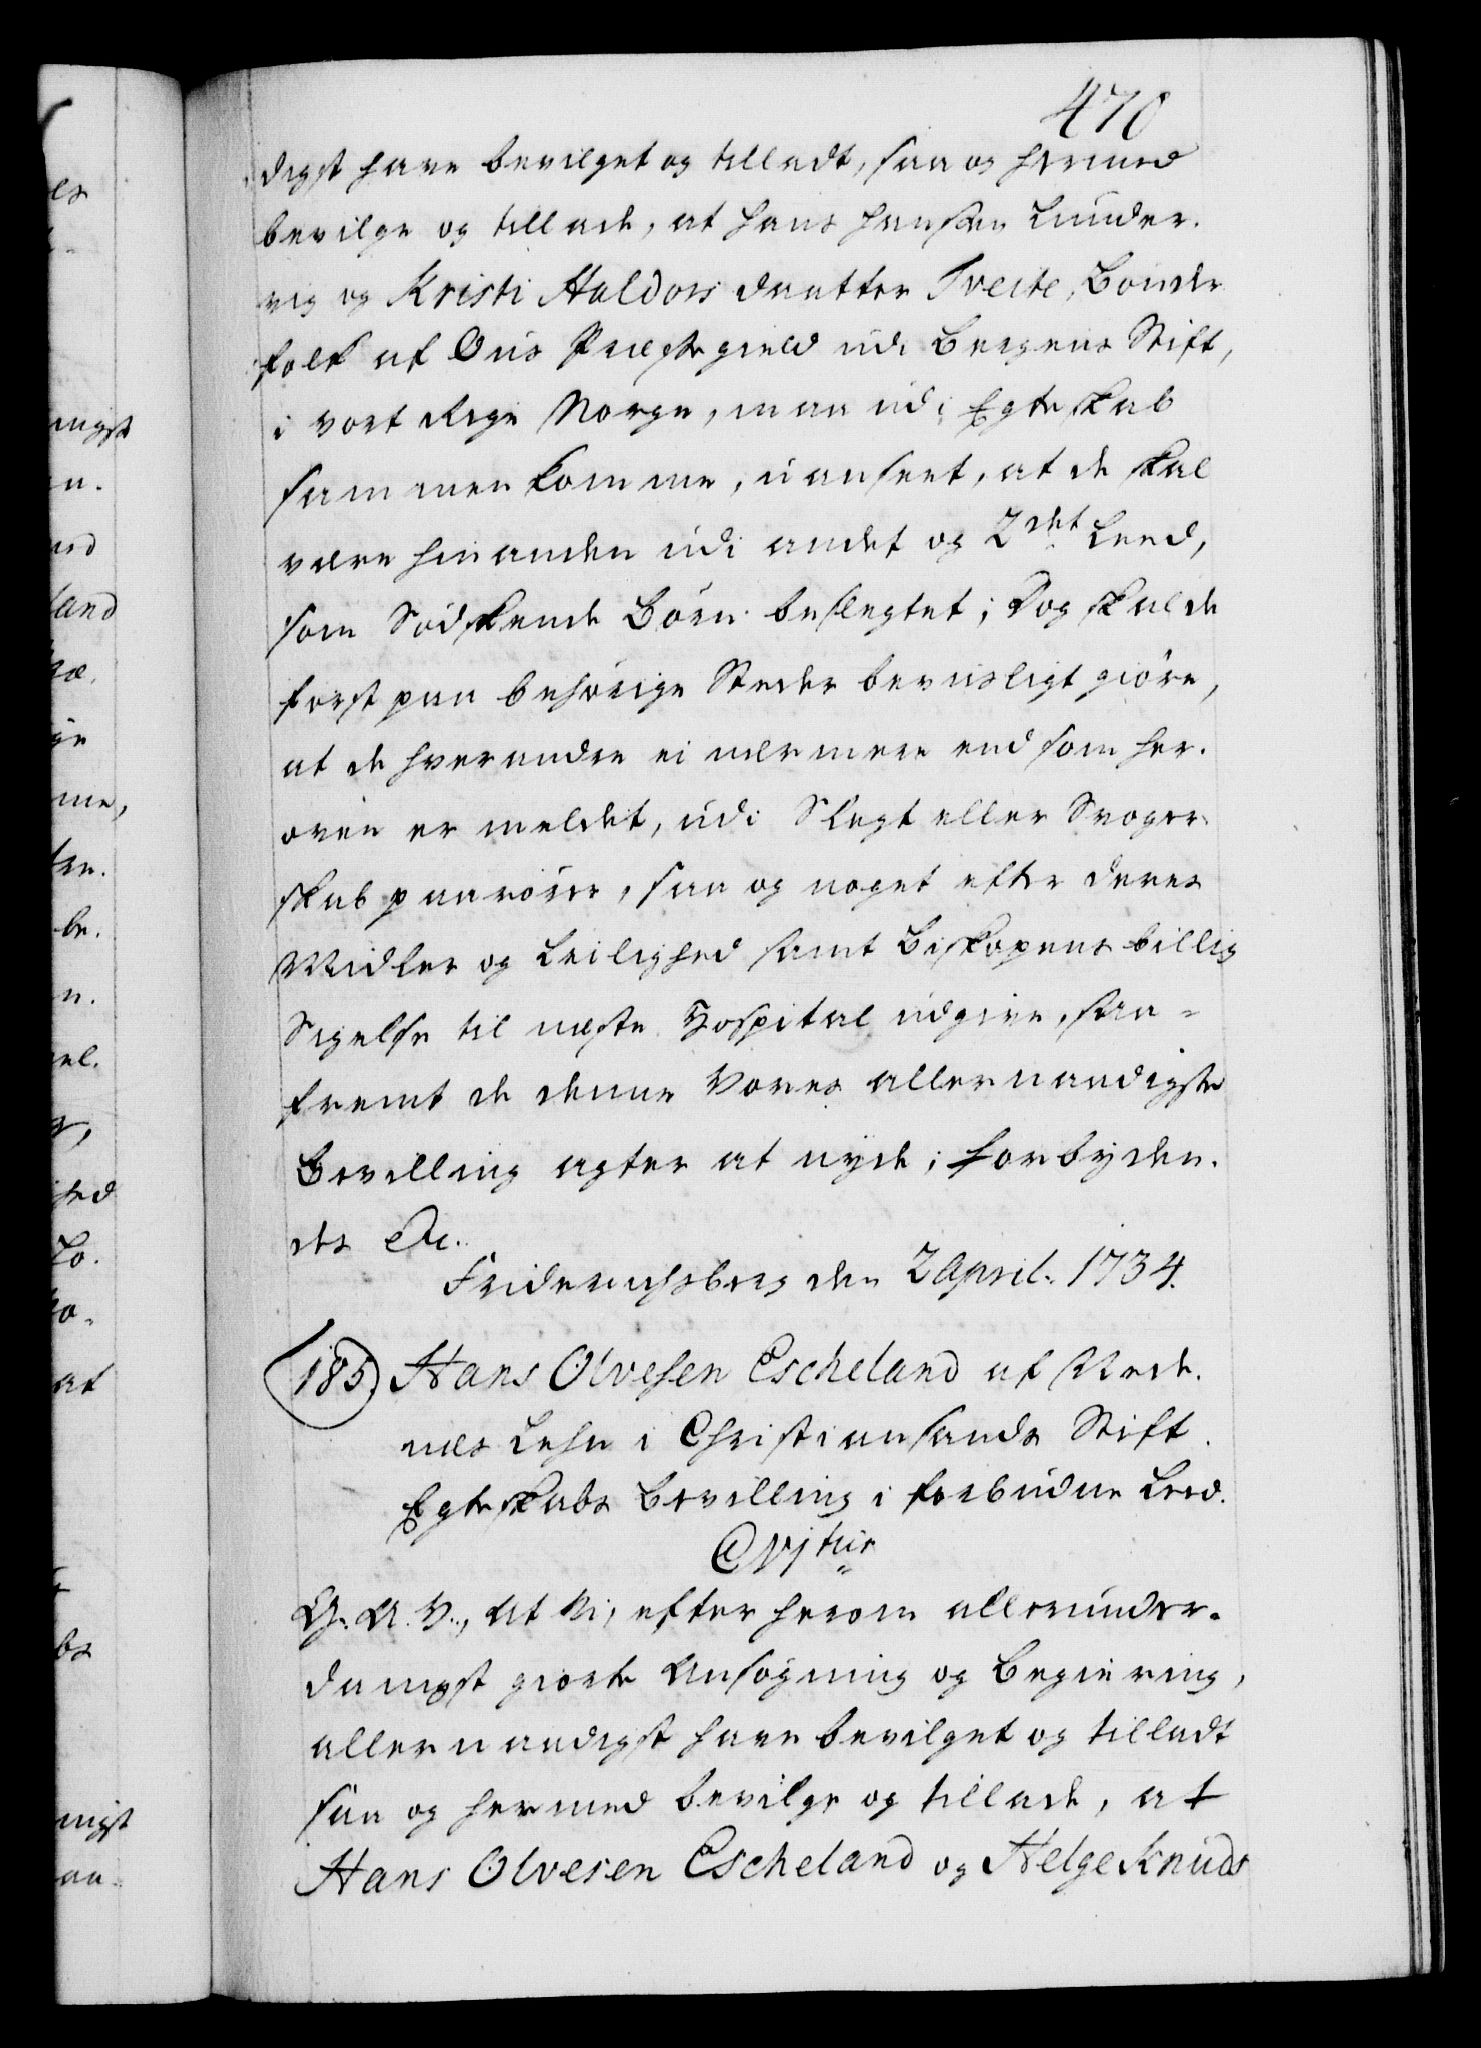 470
digst have bevilget og tilladt, saa og hermed
bevilge og tillade, at Hans Hansen Lunder-
vig og Kristi Haldors daatter Tveite, Bønder
folk af Ous Præstegield udi Bergens Stift,
i vort Rige Norge, maa udi Egteskab
sammenkomme, uanseet, at de skal
være hinanden udi andet og 2det Leed,
som Sødskende Børn beslegtet; Dog skal de
først paa behørige Steder bevisligt giøre,
at de hverandre ei nærmere end som her-
oven er meldet, udi Slegt eller Svoger-
skab paarører, saa og noget efter deres
Midler og Leilighed samt Biskopens billig
Sigelse til næste Hospital udgive, saa-
fremt de denne Vores allernaadigste
Bevilling agter at nyde; Forbyden-
des &c.
Friderichsberg den 2 April. 1734.
185) Hans Olvesen Escheland af Nede-
næs Lehn i Christiansands Stift.
Egteskabs Bevilling i forbudne Leed.
C VI tus
G. A. V., At Vi, efter herom allerunder-
danigst giorte Ansøgning og Begiering,
allernaadigst have bevilget og tilladt
saa og hermed bevilge og tillade, at
Hans Olvesen Escheland og Helge Knuds